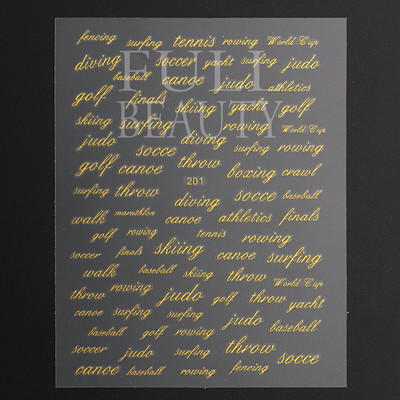 fencing surfing tennis rowing World Cup
diving soccer yacht surfing judo
FULL
baseball canoe judo athletics
golf finals skiing yacht golf
BEAUTY
skiing surfing rowing World Cup
judo socce diving surfing rowing
golf canoe throw boxing crawl
201
surfing throw diving socce baseball
walk marathlon canoe athletics finals
golf rowing tennis rowing
soccer finals skiing canoe surfing
walk baseball skiing throw World Cup
throw rowing judo golf throw yacht
canoe surfing surfing judo
baseball golf rowing baseball
soccer judo surfing throw socce
canoe baseball rowing fencing